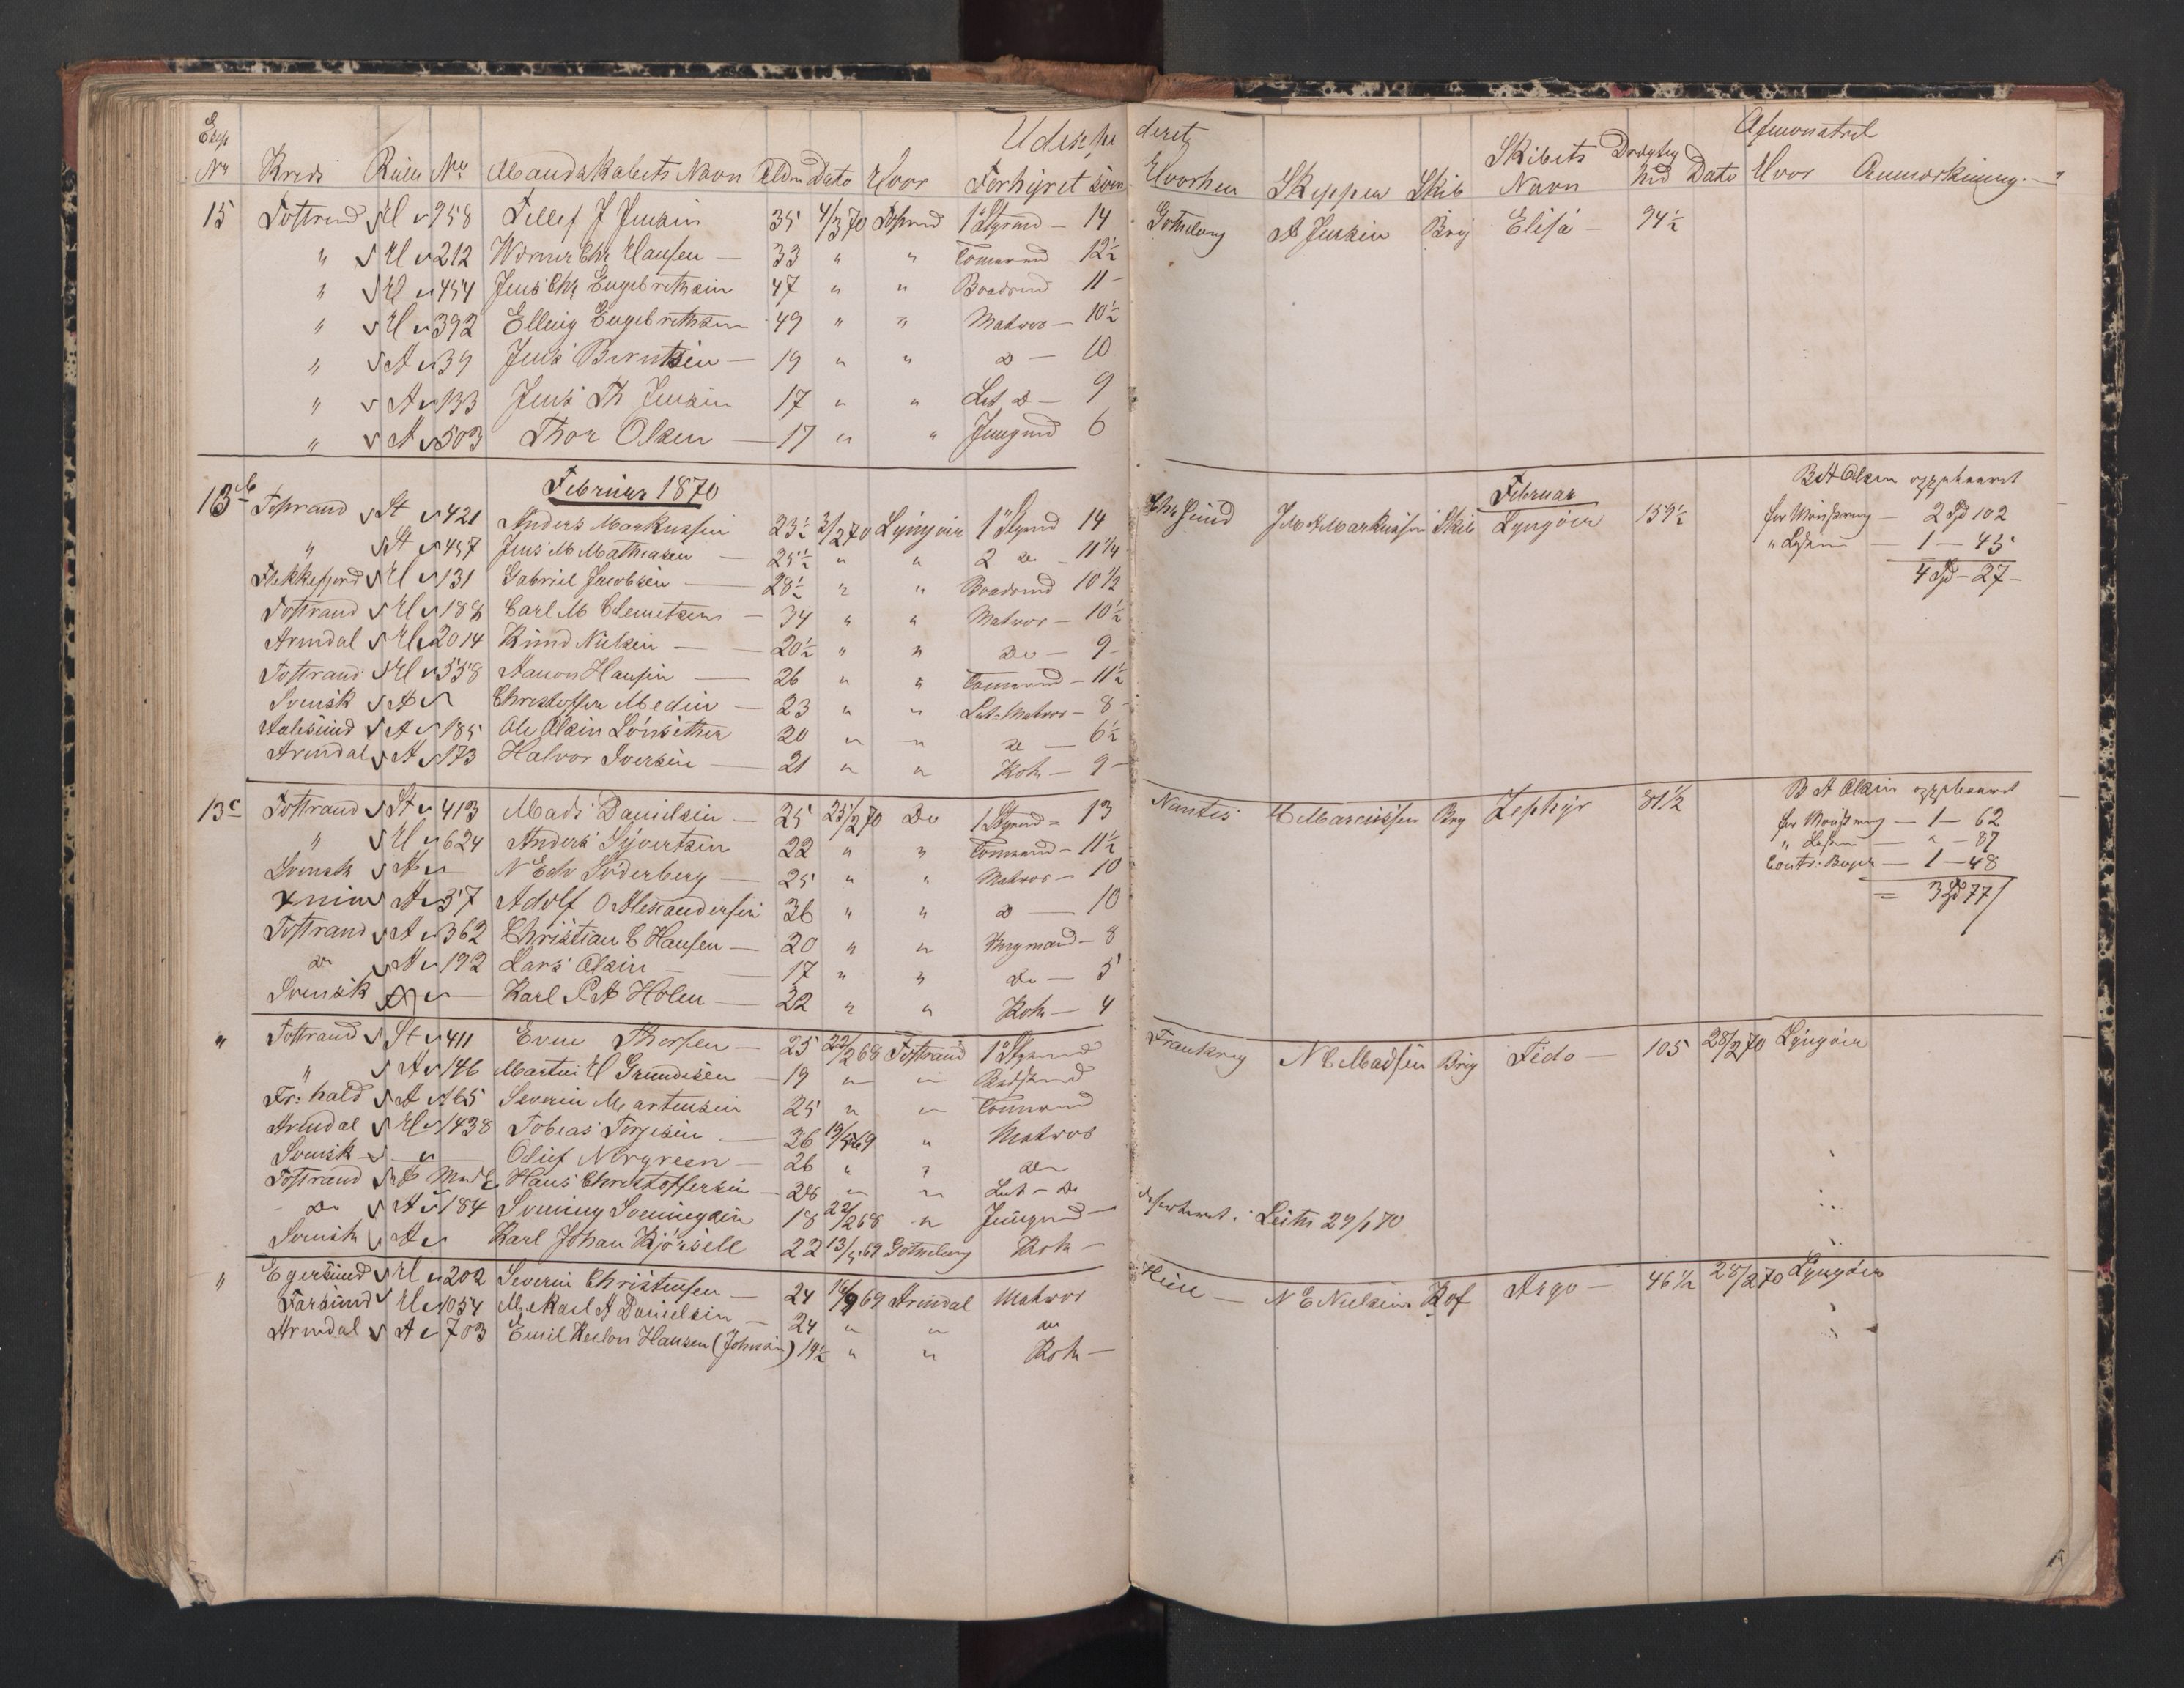 Exp Udskederet Afmønstret
Nr Kreds Rulle No Mandskabets Navn Alder Dato Hvor Forhyret som Hvorhen Skipper Skib Skibets Navn Drægtighed Dato Hvor Anmærkning
15 Tostrand H 958 Tellef J Jensen 35 4/3 70 Tostrand 1 Styrmd 14 Gotheborg A Jensen Brig Elisa 94½
" H 212 Werner Chr Hansen 33 " " Tømermd 12½
" H 454 Jens Chr Engebrethsen 47 " " Baadsmd 11
" H 392 Elling Engebrethsen 49 " " Matros 10½
" A 39 Jens Berntsen 19 " " do 10
" A 133 Jens Th Jensen 17 " " Let do 9
" A 503 Thor Olsen 17 " " Jungmd 6
Februar 1870 Februar
13b Tostrand St 421 Anders Markussen 23½ 3/2 70 Lyngøer 1 Styrmd 14 J M Markussen Skib Lyngøer 159½ B A Olsen oppebaaret
" St 457 Jens M Mathiasen 25½ " " 2 do 11¼ for Mønstring 2 Spd 102
Flekkefjord H 131 Gabriel Jacobsen 28½ " " Baadsmd 10½ 1 — 45
Tostrand H 188 Carl M Clemetsen 34 " " Matros 10½ 4 Spd 27
Arendal H 2014 Knud Nielsen 20½ " " do 9
Tostrand H 558 Aanon Hansen 26 " " Tømermd 11½
Svensk A Christoffer Medin 23 " " Let-Matros 8
Aalesund A 185 Ole Olsen Lønsether 20 " " do 6½
Arendal A 173 Halvor Iversen 21 " " Kok 9
13c Tostrand St 413 Mads Danielsen 25 25/2 70 Do 1 Styrmd 13 Nantes H Marcussen Brig Zephyr 81½ B A Olsen oppebaaret
" H 624 Anders Syvertsen 22 " " Tømermd 11½ for Mønstring 1 — 62
Svensk A N Edv Söderberg 25 " " Matros 10 " — " — 87
A 57 Adolf O Alexandersen 36 " " do 10 1 — 48
Tostrand A 362 Christian C Hansen 20 " " Jungmand 8 = 3 Spd 77
do A 192 Lars Olsen 17 " " do 5
Svensk A Karl P A Holm 22 " " Kok 4
" Tostrand St 411 Even Thorsen 25 22/2 68 Tostrand 1 Styrmd Frankrig N C Madsen Brig Fido 105 28/2 70 Lyngøer
" A 146 Martin H Gundersen 19 " " Baadsmd
Fr: hald A 165 Severin Martensen 25 " " Tømermd
Arendal H 1438 Tobias Torjesen 36 19/5 69 " Matros
Svensk Oluf Norgreen 26 " " do
Tostrand Hans Christoffersen 28 " " Let - do
do A 184 Svening Sveningsen 18 22/2 68 " Jungmd deserteret i Leith 29/1 70
Svensk A Karl Johan Kjörsell 22 13/5 69 Gotheborg Kok
" Egersund H 202 Severin Christensen 24 16/9 69 Arendal Matros N E Nielsen Kof Argo 46½ 28/2 70 Lyngøer
Farsund H 1054 Mekael A Danielsen 24 " " do
Arendal A 703 Emil Hansen (Johnsen) 14½ " " Kok